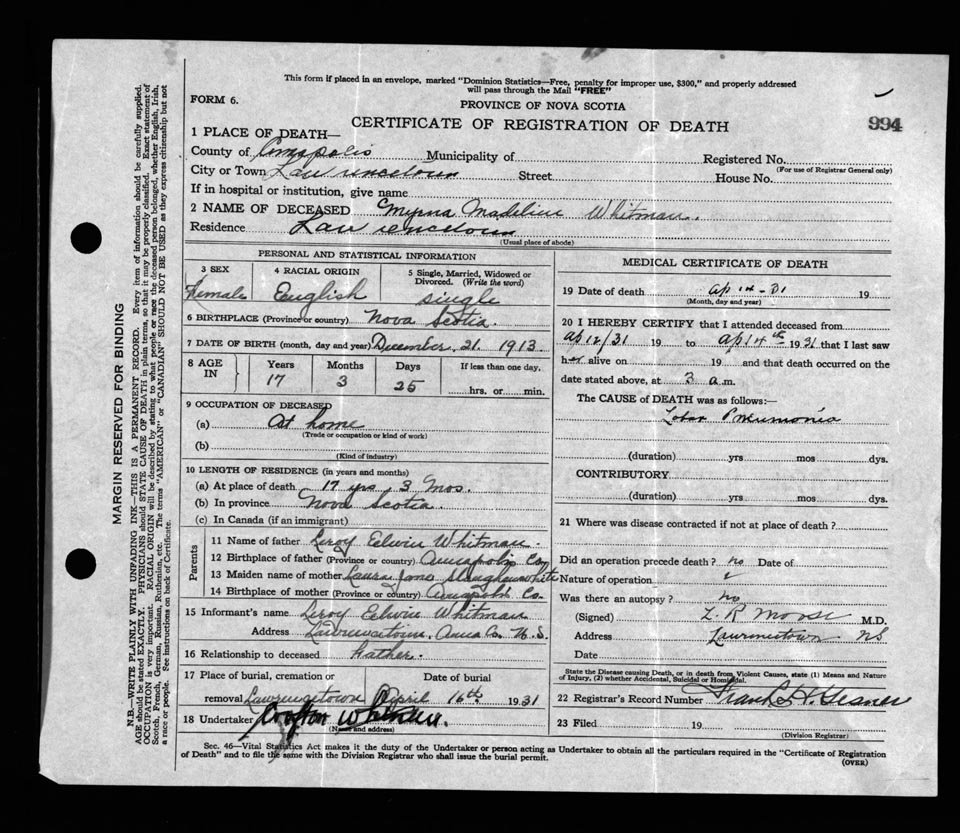 This form if placed in an envelope, marked "Dominion Statistics—Free, penalty for improper use, $300," and properly addressed
will pass through the Mail "FREE"
FORM 6.
PROVINCE OF NOVA SCOTIA
CERTIFICATE OF REGISTRATION OF DEATH
994
1 PLACE OF DEATH—
County of Annapolis Municipality of Registered No.
(For use of Registrar General only)
City or Town Lawrencetown Street House No.
If in hospital or institution, give name
2 NAME OF DECEASED Myrna Madeline Whitman.
Residence Lawrencetown
(Usual place of abode)
PERSONAL AND STATISTICAL INFORMATION
3 SEX 4 RACIAL ORIGIN 5 Single, Married, Widowed or Divorced. (Write the word)
Female English single
6 BIRTHPLACE (Province or country) Nova Scotia.
7 DATE OF BIRTH (month, day and year) December. 21. 1913.
8 AGE IN Years Months Days If less than one day,
17 3 25 hrs. or min.
9 OCCUPATION OF DECEASED
(a) At home
(Trade or occupation or kind of work)
(b)
(Kind of industry)
10 LENGTH OF RESIDENCE (in years and months)
(a) At place of death 17 yrs, 3 Mos.
(b) In province Nova Scotia.
(c) In Canada (if an immigrant)
Parents
11 Name of father Leroy Edwin Whitman.
12 Birthplace of father (Province or country) Annapolis Co
13 Maiden name of mother Laura Jane Slaughenwhite
14 Birthplace of mother (Province or country) Annapolis Co.
15 Informant's name Leroy Edwin Whitman
Address Lawrencetown, Anna Co. N.S.
16 Relationship to deceased Father.
17 Place of burial, cremation or Date of burial
removal Lawrencetown April 16th 1931
18 Undertaker
(Name and address)
MEDICAL CERTIFICATE OF DEATH
19 Date of death Ap 14-31 19
(Month, day and year)
20 I HEREBY CERTIFY that I attended deceased from
Ap 12/31 19 to Ap 14th 1931 that I last saw
her alive on 19 and that death occurred on the
date stated above, at 3 a.m.
The CAUSE of DEATH was as follows:—
Lobar Pneumonia
(duration) yrs mos dys.
CONTRIBUTORY
(duration) yrs mos dys.
21 Where was disease contracted if not at place of death?
Did an operation precede death? no Date of
Nature of operation
Was there an autopsy? no
(Signed) L. R. Morse M.D.
Address Lawrencetown NS
Date
State the Disease causing Death, or in death from Violent Causes, state (1) Means and Nature
of Injury, (2) whether Accidental, Suicidal or Homicidal.
22 Registrar's Record Number
23 Filed 19
(Division Registrar)
Sec. 46—Vital Statistics Act makes it the duty of the Undertaker or person acting as Undertaker to obtain all the particulars required in the "Certificate of Registration
of Death" and to file the same with the Division Registrar who shall issue the burial permit.
(OVER)
MARGIN RESERVED FOR BINDING
N.B.—WRITE PLAINLY WITH UNFADING INK—THIS IS A PERMANENT RECORD. Every item of information should be carefully supplied.
AGE should be stated EXACTLY. PHYSICIANS should STATE CAUSE OF DEATH in plain terms, so that it may be properly classified. Exact statement of
OCCUPATION is very important. RACIAL ORIGIN will be described by stating to what people or race the deceased person belonged, whether English, Irish,
Scotch, French, German, Russian, Ruthenian, etc. The terms "AMERICAN" or "CANADIAN" SHOULD NOT BE USED as they express citizenship but not
a race or people. See instructions on back of Certificate.